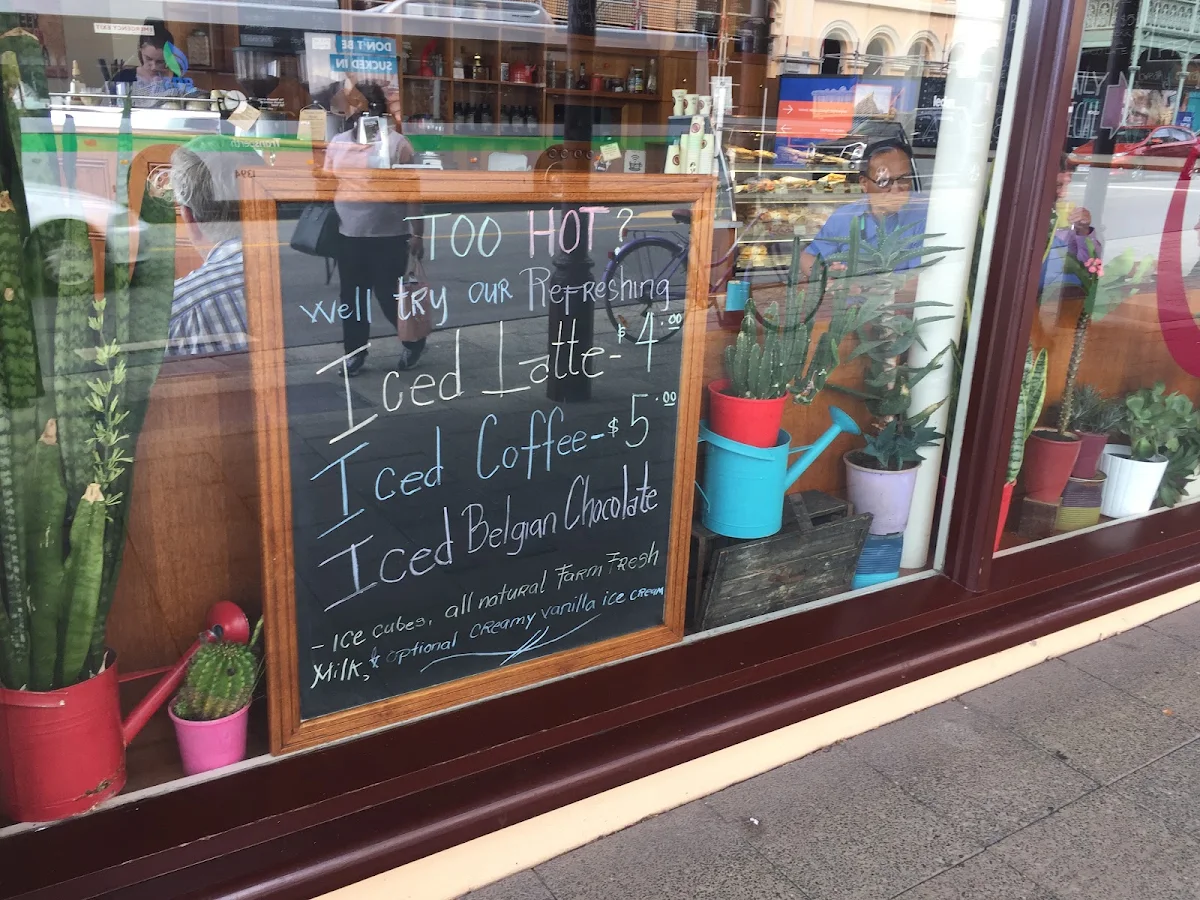 EMERGENCY EXIT
DON'T BE
SUCKED IN
TOO HOT?
Well try our Refreshing
Iced Latte - $4.00
Iced Coffee - $5.00
Iced Belgian Chocolate
- Ice cubes, all natural Farm Fresh
Milk, & optional creamy vanilla ice cream